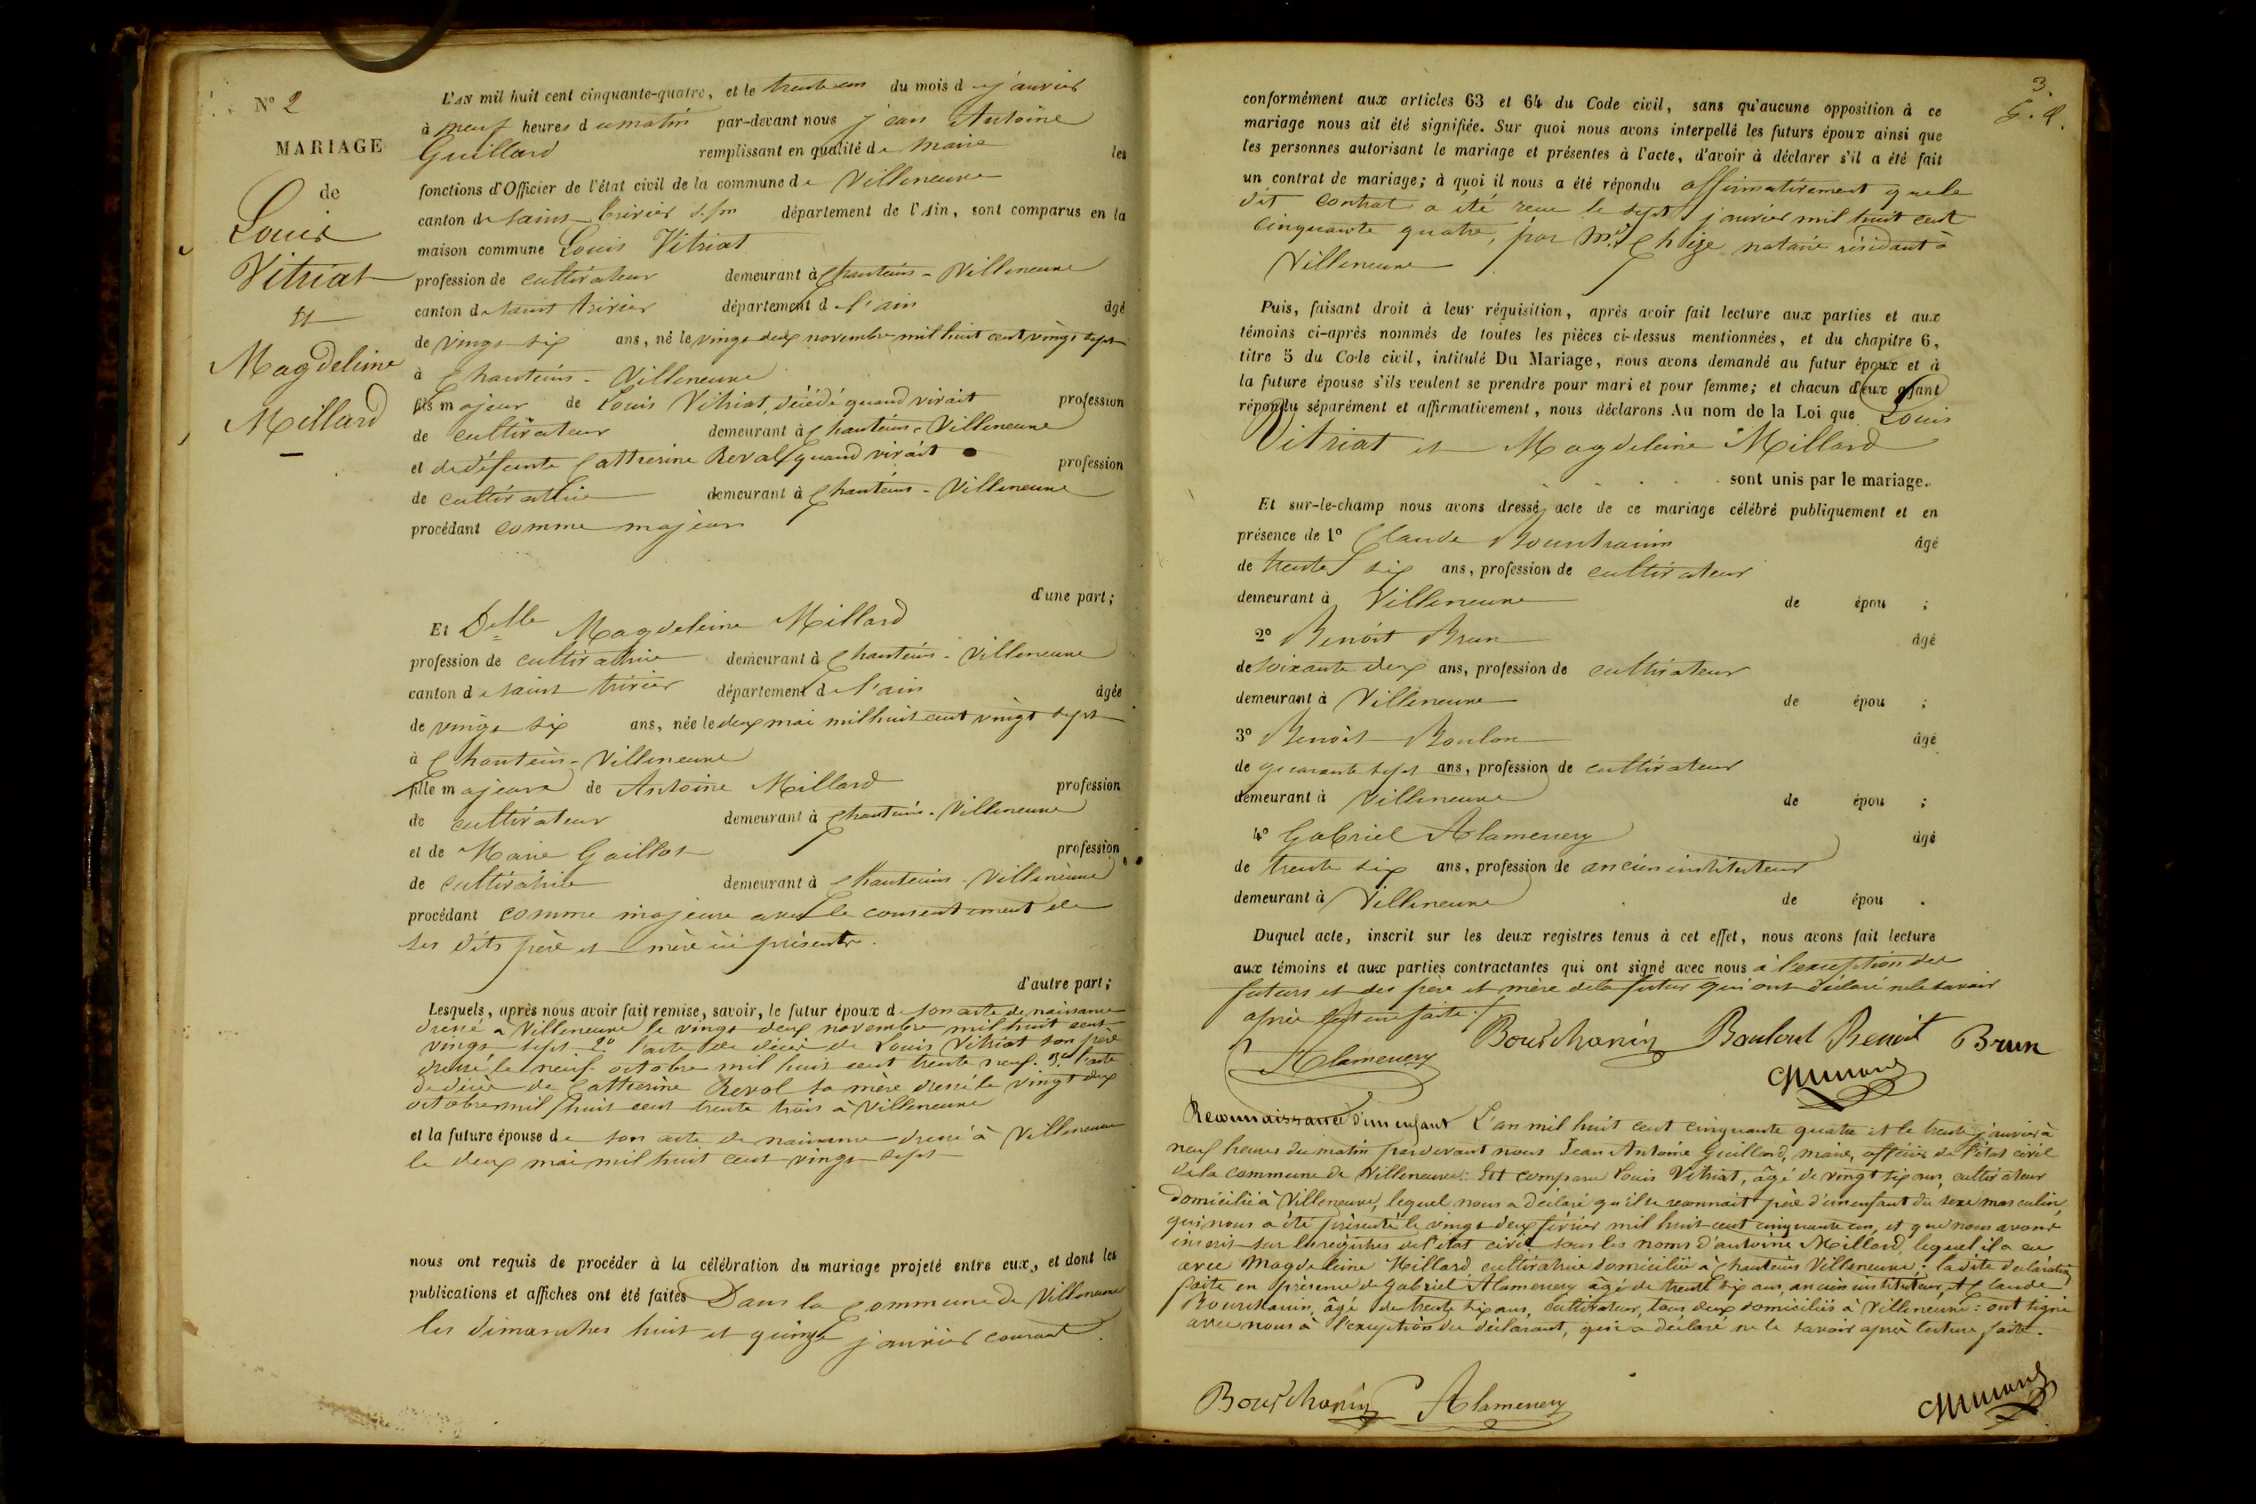 N° 2
MARIAGE
de
Louis
Vitriat
et
Magdeleine
Millard
L'AN mil huit cent cinquante-quatre, et le trente du mois de janvier
à neuf heures du matin par-devant nous jean Antoine
Guillard remplissant en qualité de Maire les
fonctions d'Officier de l'état civil de la commune de Villeneuve
canton de saint trivier département de l'Ain, sont comparus en la
maison commune Louis Vitriat
profession de cultivateur demeurant à Chanteins - Villeneuve
canton de saint trivier département de l'ain âgé
de vingt six ans, né le vingt deux novembre mil huit cent vingt sept
à Chanteins - Villeneuve
fils majeur de Louis Vitriat, décédé quand vivait profession
de cultivateur demeurant à Chanteins - Villeneuve
et de défunte Catherine Revol quand vivait profession
de cultivatrice demeurant à Chanteins - Villeneuve
procédant comme majeur
d'une part;
Et Delle Magdeleine Millard
profession de cultivatrice demeurant à Chanteins - Villeneuve
canton de saint trivier département de l'ain âgée
de vingt six ans, née le deux mai mil huit cent vingt sept
à Chanteins - Villeneuve
fille majeure de Antoine Millard profession
de cultivateur demeurant à Chanteins - Villeneuve
et de Marie Gaillot profession
de cultivatrice demeurant à Chanteins - Villeneuve
procédant comme majeure avec le consentement de
ses dits père et mère ici présents.
d'autre part;
Lesquels, après nous avoir fait remise, savoir, le futur époux de son acte de naissance
dressé à Villeneuve le vingt deux novembre mil huit cent
vingt sept 2° l'acte de décès de Louis Vitriat son père
dressé le neuf octobre mil huit cent trente neuf. 3° l'acte
de décès de Catherine Revol sa mère dressé le vingt deux
octobre mil huit cent trente trois à Villeneuve
et la future épouse de son acte de naissance dressé à Villeneuve
le deux mai mil huit cent vingt sept
nous ont requis de procéder à la célébration du mariage projeté entre eux, et dont les
publications et affiches ont été faites Dans la Commune de Villeneuve
les dimanches huit et quinze janvier courant.
3.
G. A.
conformément aux articles 63 et 64 du Code civil, sans qu'aucune opposition à ce
mariage nous ait été signifiée. Sur quoi nous avons interpellé les futurs époux ainsi que
les personnes autorisant le mariage et présentes à l'acte, d'avoir à déclarer s'il a été fait
un contrat de mariage; à quoi il nous a été répondu affirmativement que le
dit contrat a été reçu le sept janvier mil huit cent
cinquante quatre, par notaire résidant à
Villeneuve
Puis, faisant droit à leur réquisition, après avoir fait lecture aux parties et aux
témoins ci-après nommés de toutes les pièces ci-dessus mentionnées, et du chapitre 6,
titre 5 du Code civil, intitulé Du Mariage, nous avons demandé au futur époux et à
la future épouse s'ils veulent se prendre pour mari et pour femme; et chacun d'eux ayant
répondu séparément et affirmativement, nous déclarons Au nom de la Loi que Louis
Vitriat et Magdeleine Millard
sont unis par le mariage.
Et sur-le-champ nous avons dressé acte de ce mariage célébré publiquement et en
présence de 1° Claude Bourchanin âgé
de trente six ans, profession de cultivateur
demeurant à Villeneuve de épou ;
2° Benoit Brun âgé
de soixante deux ans, profession de cultivateur
demeurant à Villeneuve de épou ;
3° Benoit Boulon âgé
de quarante sept ans, profession de cultivateur
demeurant à Villeneuve de épou ;
4° Gabriel Alamenery âgé
de trente six ans, profession de ancien instituteur
demeurant à Villeneuve de épou .
Duquel acte, inscrit sur les deux registres tenus à cet effet, nous avons fait lecture
aux témoins et aux parties contractantes qui ont signé avec nous à l'exception des
futurs et des père et mère de la future qui ont déclaré ne le savoir
après lecture faite.
Alamenery Bourchanin Benoit Brun
Reconnaissance d'un enfant L'an mil huit cent cinquante quatre et le trente janvier à
neuf heures du matin pardevant nous Jean Antoine Guillard, maire, officier de l'état civil
de la commune de Villeneuve: Est comparu Louis Vitriat, âgé de vingt six ans, cultivateur
domicilié à Villeneuve, lequel nous a déclaré qu'il se reconnait père d'un enfant du sexe masculin,
qui nous a été présenté le vingt deux février mil huit cent cinquante un, et que nous avons
inscrit sur les registres de l'état civil sous les noms d'antoine Millard, lequel il a eu
avec Magdeleine Millard cultivatrice domiciliée à Chanteins Villeneuve: la dite déclaration
faite en présence de Gabriel Alamenery âgé de trente six ans, ancien instituteur, et Claude
Bourchanin, âgé de trente six ans, cultivateur, tous deux domiciliés à Villeneuve: ont signé
avec nous à l'exception du déclarant, qui a déclaré ne le savoir après lecture faite.
Bourchanin Alamenery